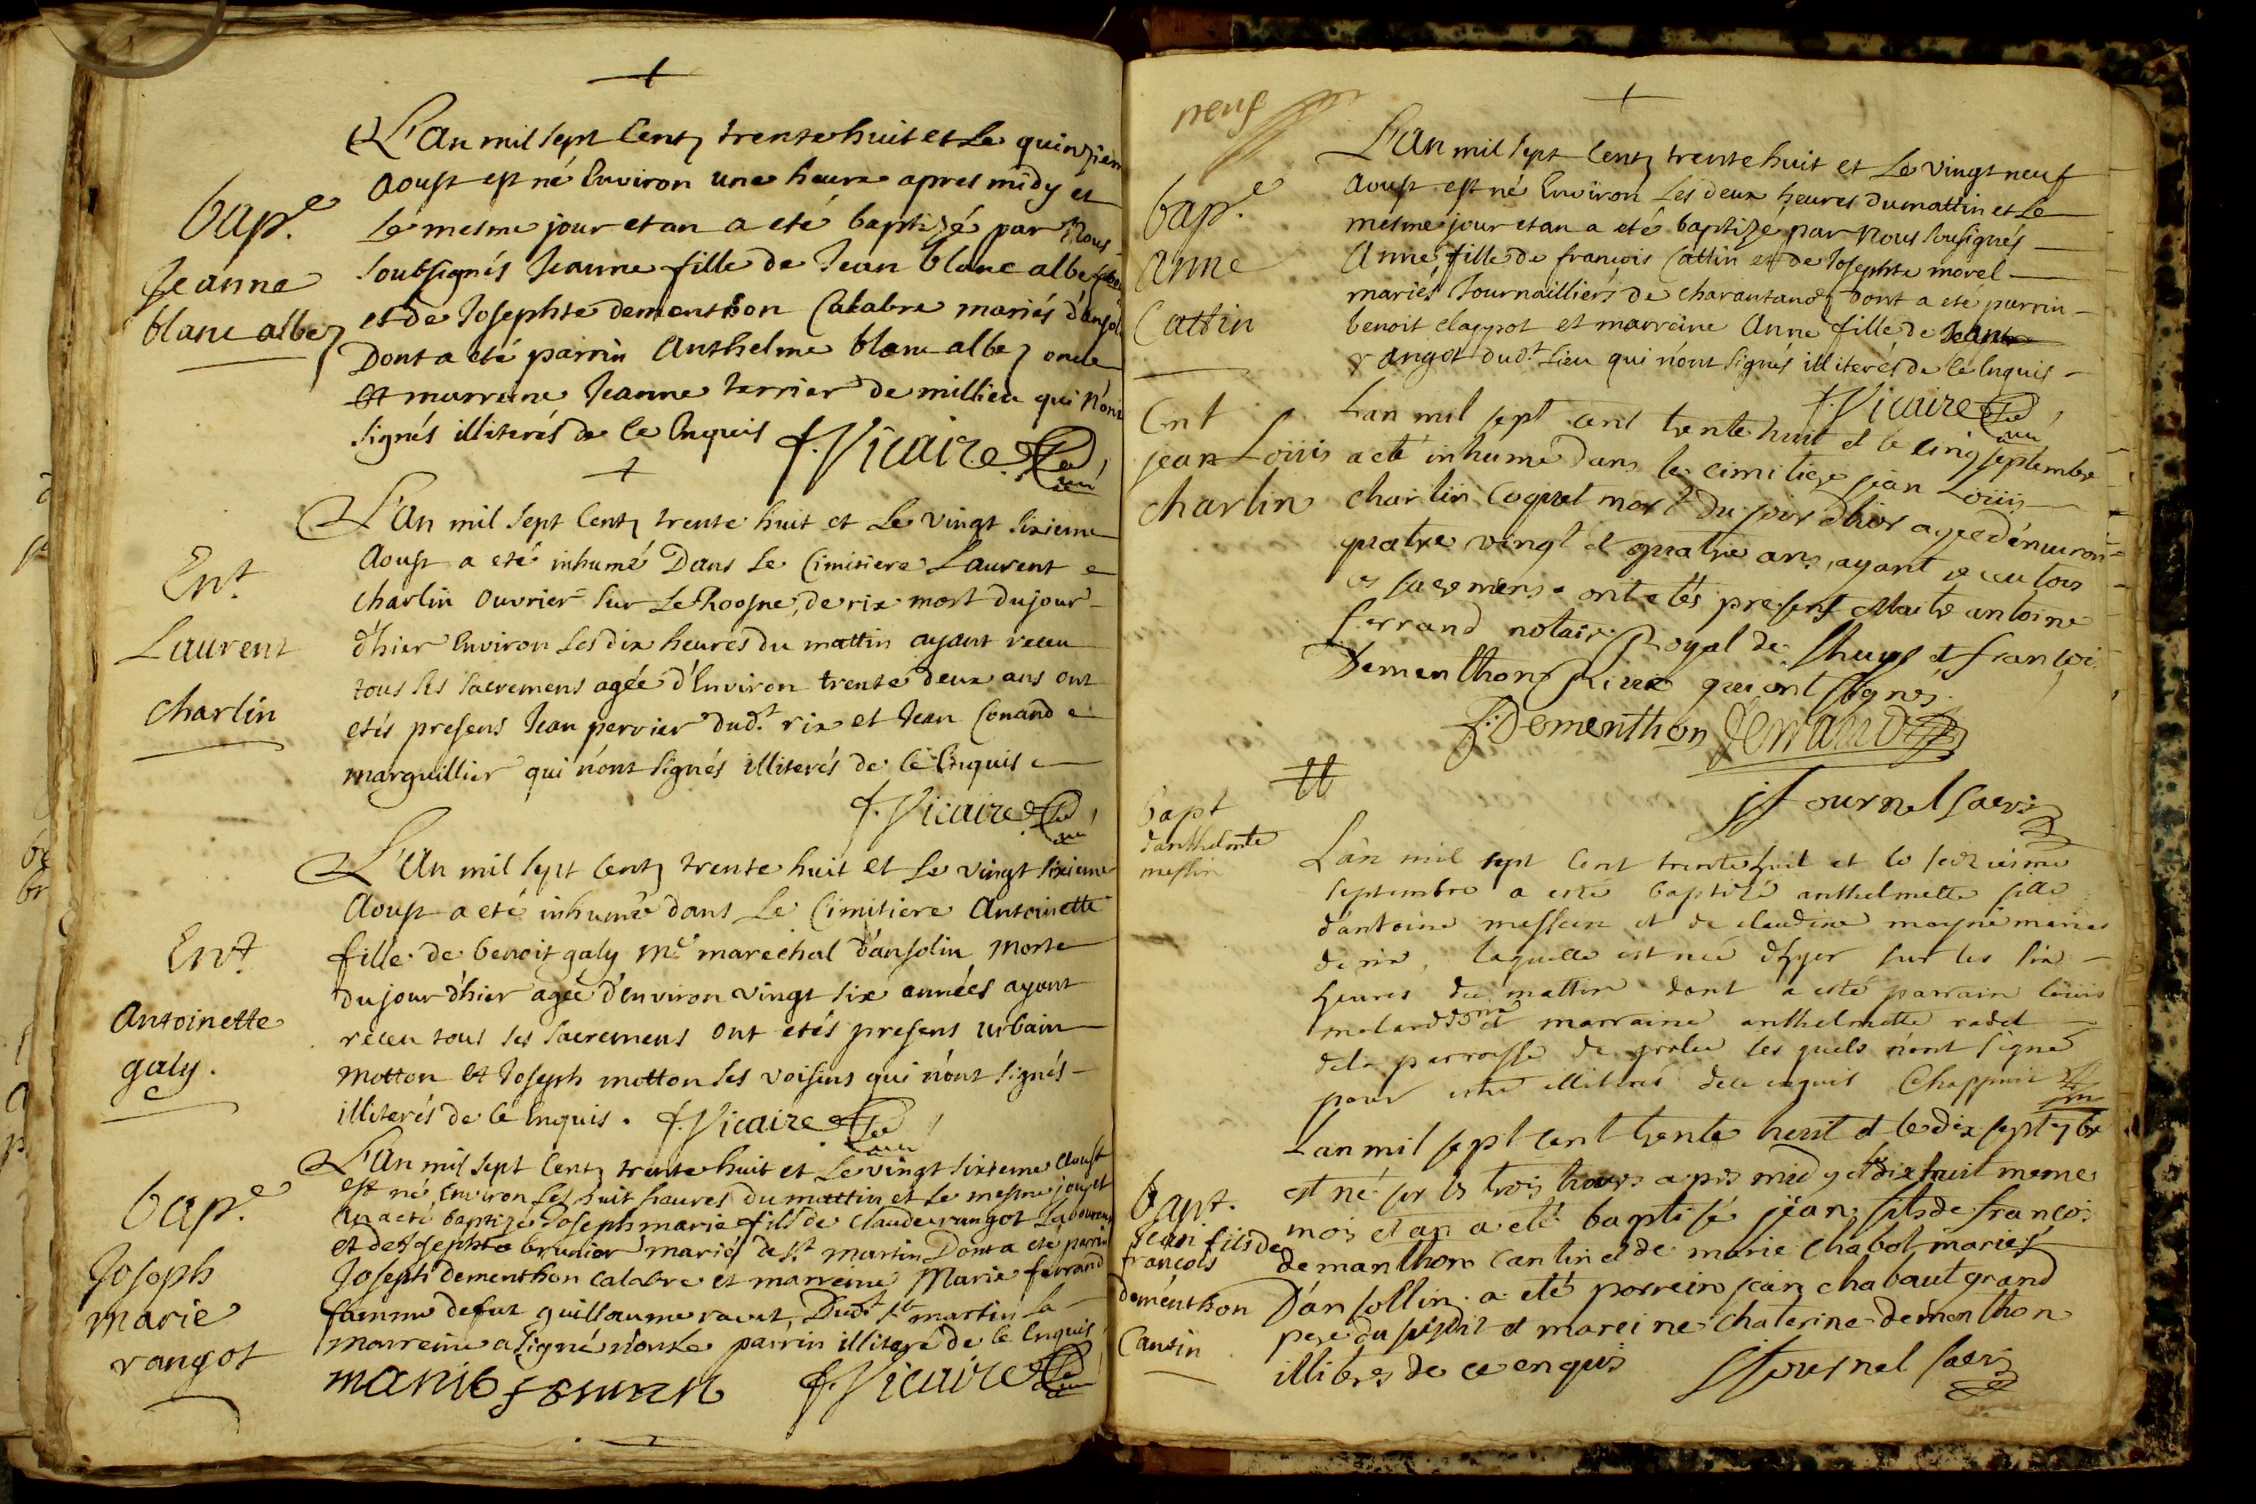 bap.e
Jeanne
blanc albe
L'An mil sept Centz trente huit et Le quinziem
Aoust est né Environ une heure apres midy et
Le mesme jour et an a eté baptizé par Nous
soubsignés Jeanne fille de Jean blanc albe
et de Josephte dementhon Calabre mariés d'ansol
Dont a eté parrin Anthelme blanc albe oncle
Et marreine Jeanne terrier de millieu qui n'ont
signés illiterés de Ce Enquis f. Vicaire
Ent.
Laurent
charlin
L'An mil sept Centz trente huit et Le vingt sixieme
Aoust a eté inhumé Dans Le Cimitiere Laurent
charlin ouvrier sur Le Rosne, de rix mort du jour
d'hier Environ Les dix heures du mattin ayant receu
tous ses sacremens agée d'Environ trente deux ans ont
etés presens Jean perrier dud.t rix et Jean Conand
marguillier qui n'ont signés illiterés de Ce Enquis
f. Vicaire
Ent.
Antoinette
galy.
L'An mil sept Centz trente huit et Le vingt sixieme
Aoust a eté inhumée dans Le Cimitiere Antoinette
fille de benoit galy m.e marechal d'ansolin morte
du jour d'hier agée d'Environ vingt six années ayant
receu tous ses sacremens ont etés presens urbain
motton et Joseph motton ses voisins qui n'ont signés
illiterés de Ce Enquis. f. Vicaire
bap.e
Joseph
marie
rangot
L'An mil sept Centz trente huit et Le vingt sixieme Aoust
est né Environ Les huit heures du mattin et Le mesme jour et
An a eté baptizé Joseph marie fils de Claude rangot
et de Josephte brunier mariés de S.t martin Dont a eté parrin
Joseph dementhon Calabre et marreine Marie ferrand
famme de fut guillaume ravet, Dud.t S.t martin La
marreine a signé non Le parrin illiteré de Ce Enquis
marie f. Vicaire
neuf
bap.e
Anne
Cattin
L'An mil sept Centz trente huit et Le vingt neuf
Aoust est né Environ Les deux heures du mattin et Le
mesme jour et an a eté baptizé par Nous sousignés
Anne fille de francois Cattin et de Josephte morel
mariés Journailliers de charantanoz Dont a eté parrin
benoit clappot et marreine Anne fille de Jean
rangot dud.t Lieu qui n'ont signés illiterés de Ce Enquis
f. Vicaire
Ent
jean Loüis
charlin
Lan mil sept cent trente huit et le cinq septembre
a eté inhumé dans le cimitiere jean Loüis
charlin Coquet mort du jour d'hier agée d'enuiron
quatre vingt et quatre ans, ayant receu tous
ces sacremens ont etés present Maitre antoine
ferrand notaire Royal de Lhuys et françois
Dementhon qui ont signés.
f. Dementhon ferrand
Journel sacri
bapt
d'anthelmette
messin
Lan mil sept Cent trente huit et le seizieme
septembre a esté baptizé anthelmette fille
d'antoine messin et de claudine moyne maries
de rix, laquelle est née dhyer sur les six
heures du mattin dont a esté parrain louis
et marraine anthelmette radet
de la parroisse de grolee les quels n'ont signé
pour estre illiteres de ce enquis Chappuis
bapt.
jean fils de
francois
dementhon
Cantin
Lan mil sept cent trente huit et le dix sept 7bre
est né sur les trois heures apres midy et dix huit meme
mois et an a eté baptisé jean fils de françois
demanthon Cantin et de marie chabot mariés
D'ansollin. a eté parrein jean chabaut grand
pere du susdit et mareine chaterine dementhon
illitres de ce enquis Journel sacri